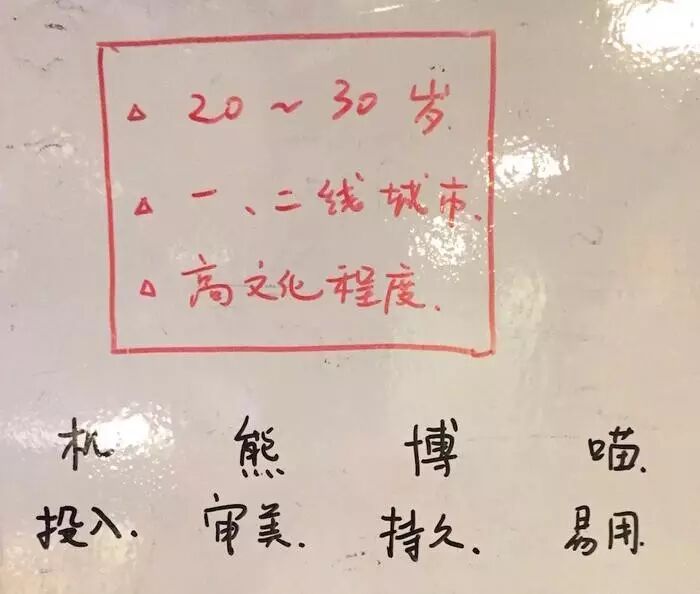 △ 20~30岁.
△ 一、二线城市.
△ 高文化程度.
机 熊 博 喵.
投入. 审美. 持久. 易用